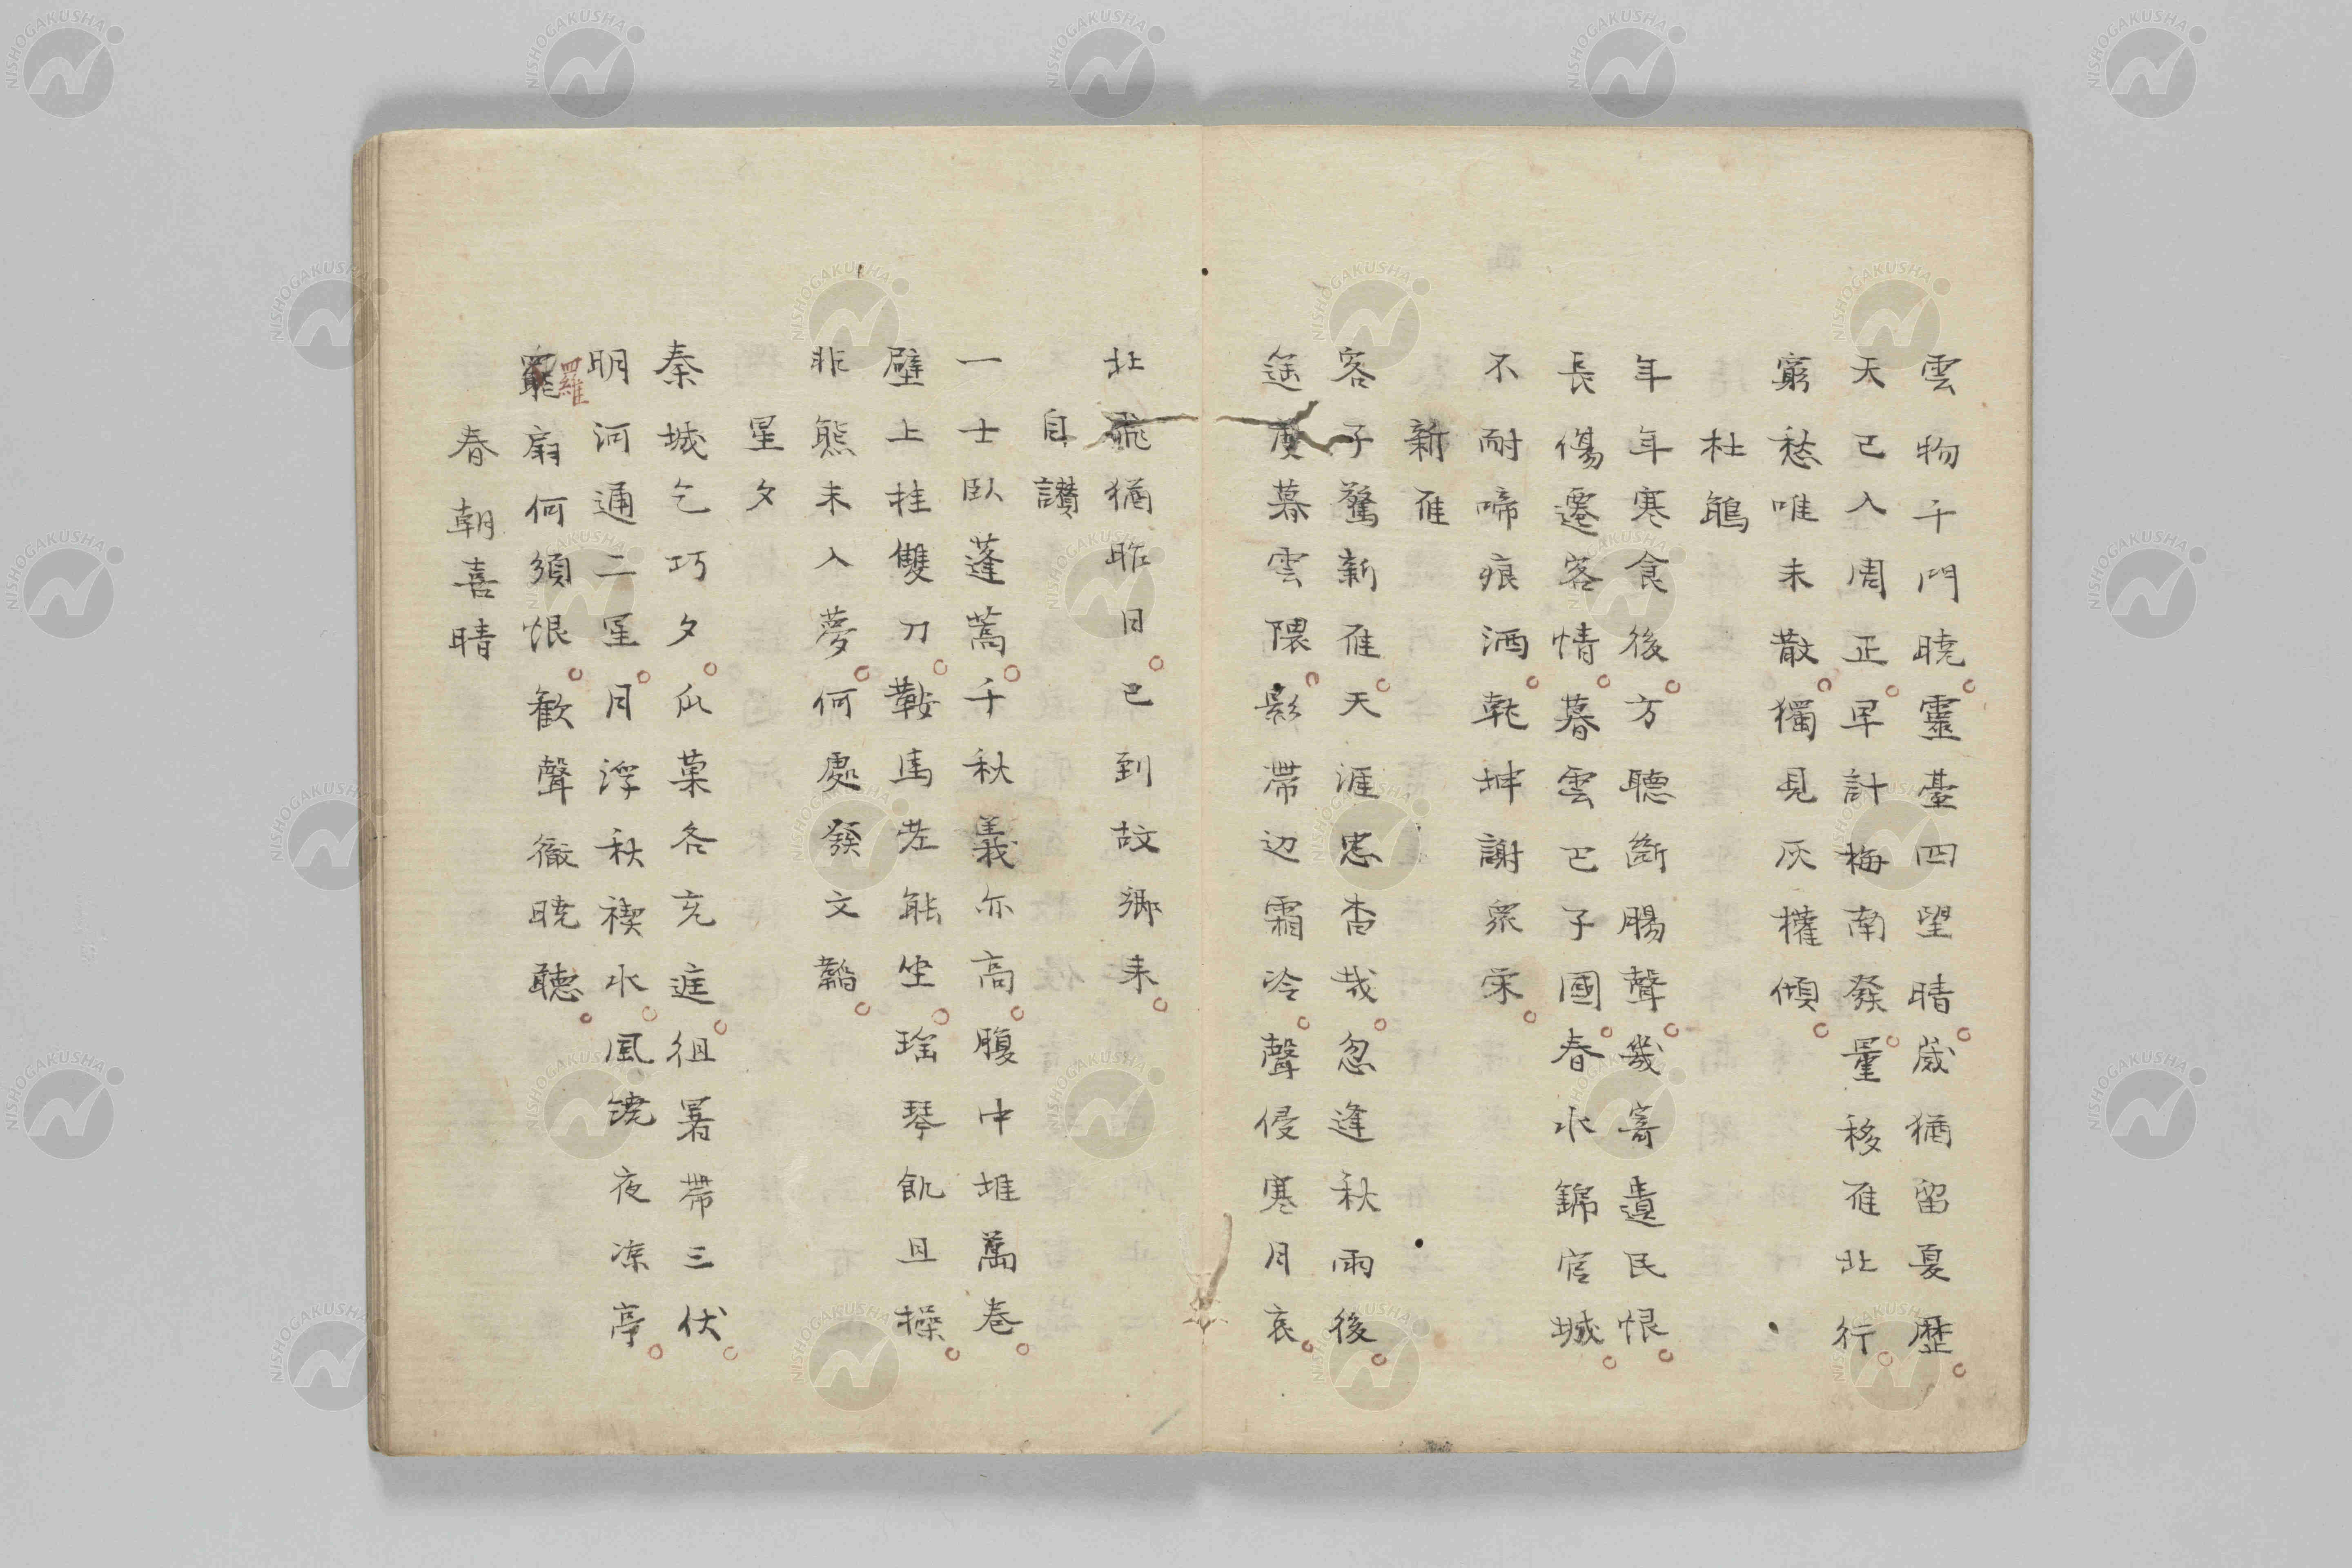 雲物千門曉靈臺四望晴歳猶留夏歷
天已入周正早計梅南發量移雁北行
窮愁唯未散獨見灰權傾
杜鵑
年年寒食後方聽斷腸聲幾寄遺民恨
長傷遷客情暮雲巴子國春水錦官城
不耐啼痕洒乾坤謝衆栄
新雁
客子驚新雁天涯思杳哉忽逢秋雨後
遥度暮雲隈影帶辺霜冷聲侵寒月哀
北飛猶昨日已到故郷来
自讃
一士臥蓬蒿千秋義亦高腹中堆萬巻
壁上挂雙刀鞍馬老能坐瑶琴飢且操
非熊未入夢何處發文韜
星夕
秦城乞巧夕瓜菓各充庭徂暑帶三伏
明河通二星月浮秋禊水風繞夜凉亭
羅
扇何須恨歓聲徹暁聴
春朝喜晴
NISHOGAKUSHA